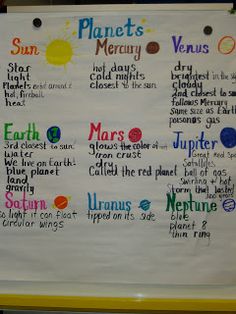 Planets
Sun
Star
light
Planets orbit around it
hot, fireball
heat
Mercury
hot days
cold nights
closest to the sun
Venus
dry
brightest in the sky
cloudy
2nd closest to sun
follows Mercury
same size as Earth
poisonas gas
Earth
3rd closest to sun
water
We live on Earth!
blue planet
land
gravity
Mars
glows the color of
iron crust
dry
Called the red planet
Jupiter
Great Red Spot
Satillites
ball of gas
swirling + hot
Storm that lasted
300 years
Saturn
so light it can float
circular wings
Uranus
tipped on its side
Neptune
blue
planet 8
thin ring